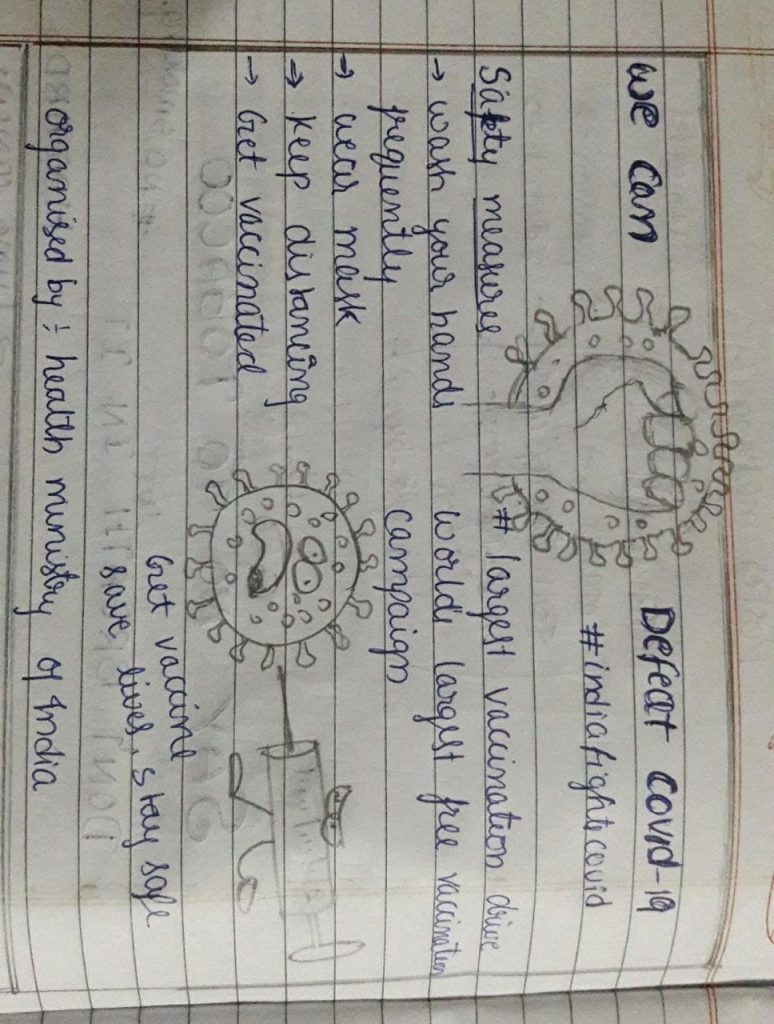 we can Defeat covid-19
#indiafightscovid
Safety measures
→ wash your hands
frequently
→ wear mask
→ keep distancing
→ Get vaccinated
# largest vaccination drive
world's largest free vaccination
campaign
Get vaccine
save lives, stay safe
organised by :- health ministry of India